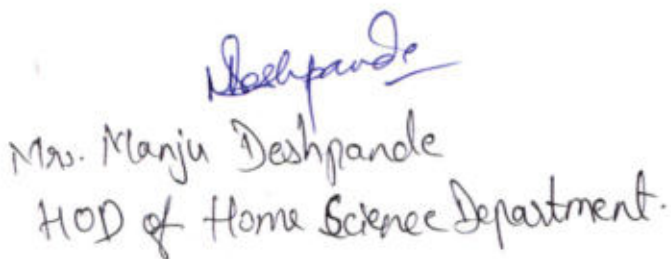 MDeshpande
Mrs. Manju Deshpande
HOD of Home Science Department.